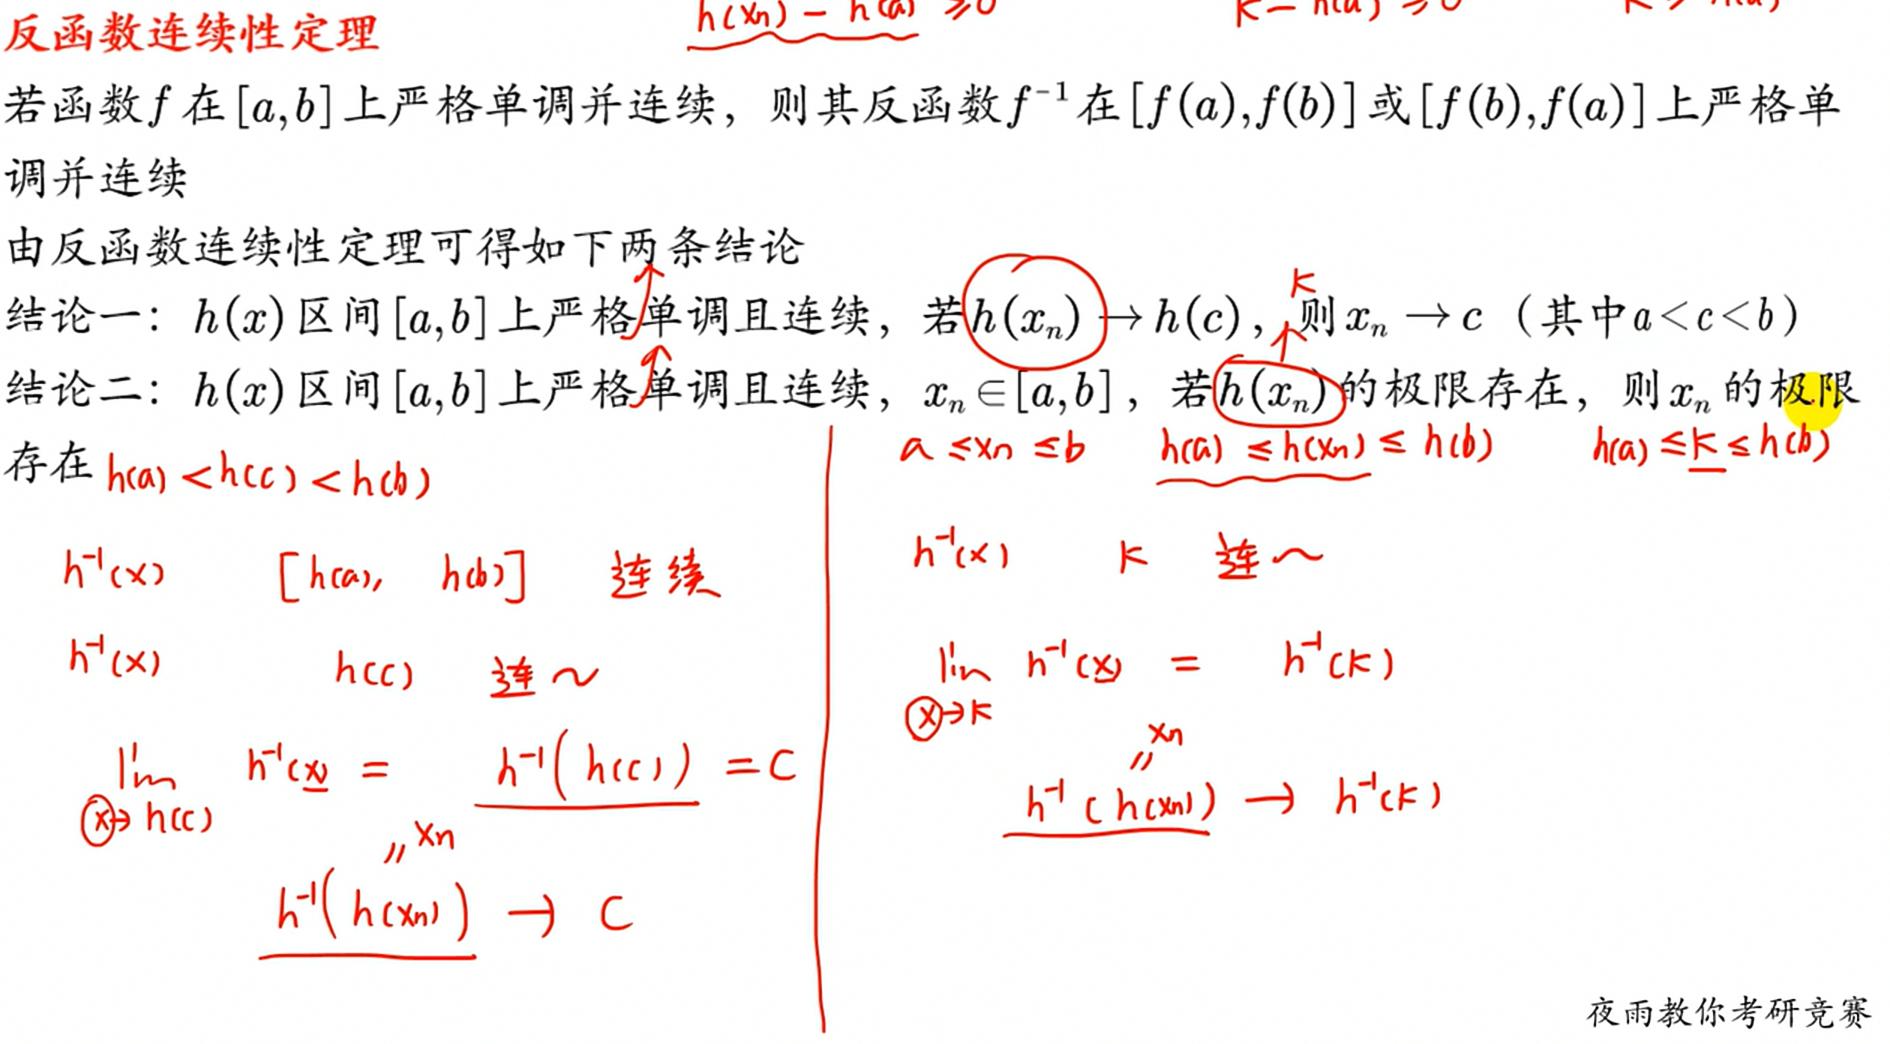 反函数连续性定理
h(xn) - h(a) ≥0
若函数f在[a,b]上严格单调并连续，则其反函数f⁻¹在[f(a),f(b)]或[f(b),f(a)]上严格单
调并连续
由反函数连续性定理可得如下两条结论
K
结论一：h(x)区间[a,b]上严格单调且连续，若h(xₙ)→h(c)，则xₙ→c（其中a<c<b）
结论二：h(x)区间[a,b]上严格单调且连续，xₙ∈[a,b]，若h(xₙ)的极限存在，则xₙ的极限
存在
h(a) < h(c) < h(b)
h⁻¹(x) [h(a), h(b)] 连续
h⁻¹(x) h(c) 连～
lim h⁻¹(x) = h⁻¹(h(c)) = C
x→h(c)
〃 xn
h⁻¹(h(xn)) → C
a ≤ xn ≤ b h(a) ≤ h(xn) ≤ h(b) h(a) ≤ K ≤ h(b)
h⁻¹(x) K 连～
lim h⁻¹(x) = h⁻¹(K)
x→K
〃 xn
h⁻¹(h(xn)) → h⁻¹(K)
夜雨教你考研竞赛